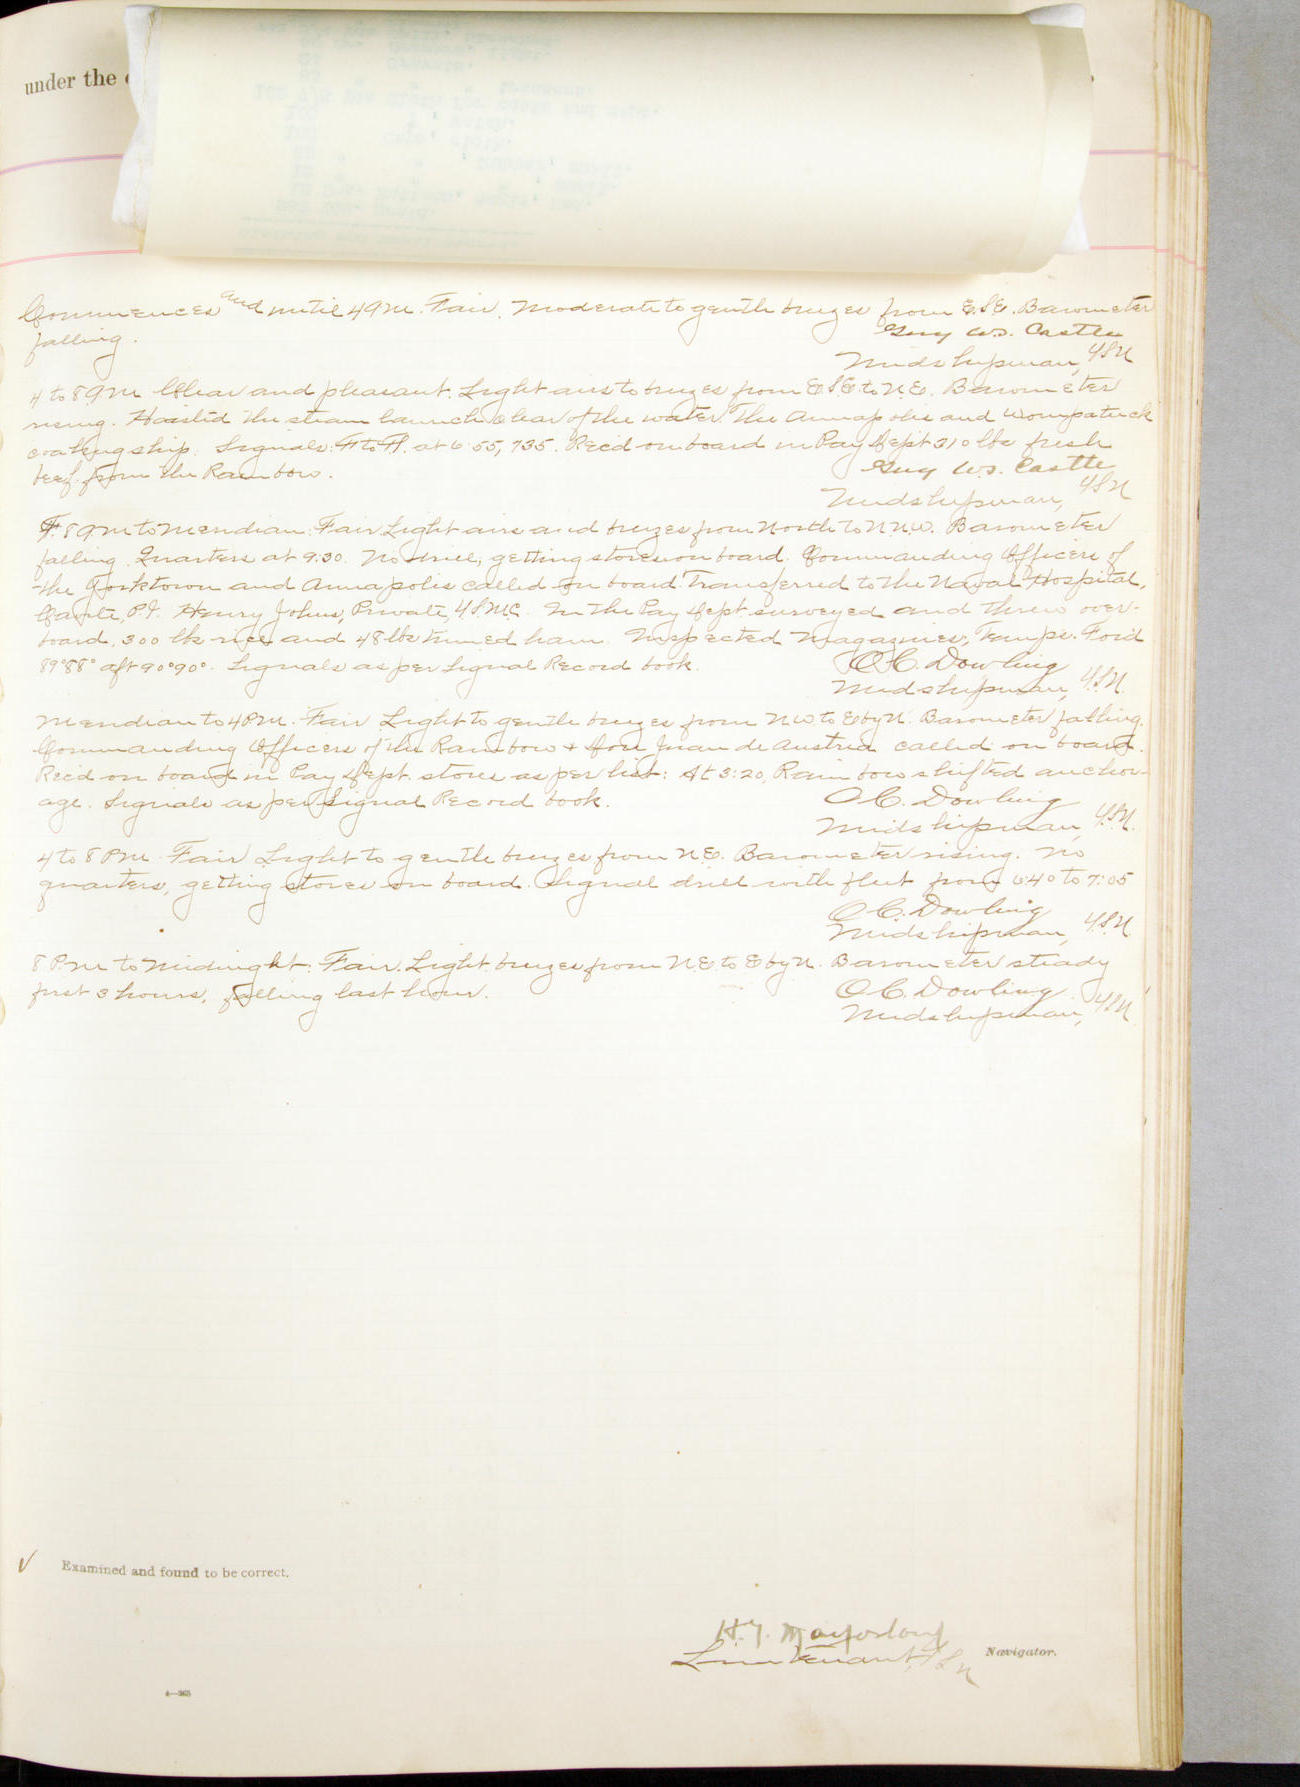 under the
Commences and until 4 A.M. Fair. Moderate to gentle breezes from E.S.E. Barometer
falling.
Guy W.S. Castle
Midshipman, U.S.N.
4 to 8 A.M. Clear and pleasant. Light airs to breezes from E.S.E. to N.E. Barometer
rising. Hoisted the steam launch clear of the water. The Annapolis and Wompatuck
coaling ship. Signals: at 6:55, 7:35. Rec'd on board in Pay Dept 310 lbs fresh
beef from the Rainbow.
Guy W.S. Castle
Midshipman, U.S.N.
8 A.M. to meridian. Fair. Light airs and breezes from North to N.N.W. Barometer
falling. Quarters at 9:30. No drill, getting stores on board. Commanding Officers of
the Yorktown and Annapolis called on board. Transferred to the Naval Hospital,
Cavite, P.I. Henry Johns, Private, U.S.M.C. In the Pay Dept. surveyed and threw over-
board, 300 lbs rice and 48 lbs tinned ham. Inspected Magazines, Temps. For'd
89° 88° aft 90° 90°. Signals as per Signal Record book.
O.C. Dowling
Midshipman, U.S.N.
Meridian to 4 P.M. Fair. Light to gentle breezes from N.W. to E by N. Barometer falling.
Commanding Officers of the Rainbow & Don Juan de Austria called on board.
Rec'd on board in Pay Dept. stores as per list: At 3:20, Rainbow shifted anchor-
age. Signals as per Signal Record book.
O.C. Dowling
Midshipman, U.S.N.
4 to 8 P.M. Fair. Light to gentle breezes from N.E. Barometer rising. No
quarters, getting stores on board. Signal drill with fleet from 6:40 to 7:05
O.C. Dowling
Midshipman, U.S.N.
8 P.M. to Midnight: Fair. Light breezes from N.E. to E by N. Barometer steady
first 3 hours, falling last hour.
O.C. Dowling
Midshipman, U.S.N.
Examined and found to be correct.
H.Y.
Lieutenant, U.S.N.
Navigator.